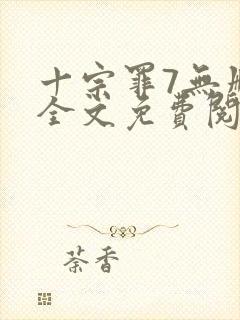 十宗罪7無
全文免費閱
荼香